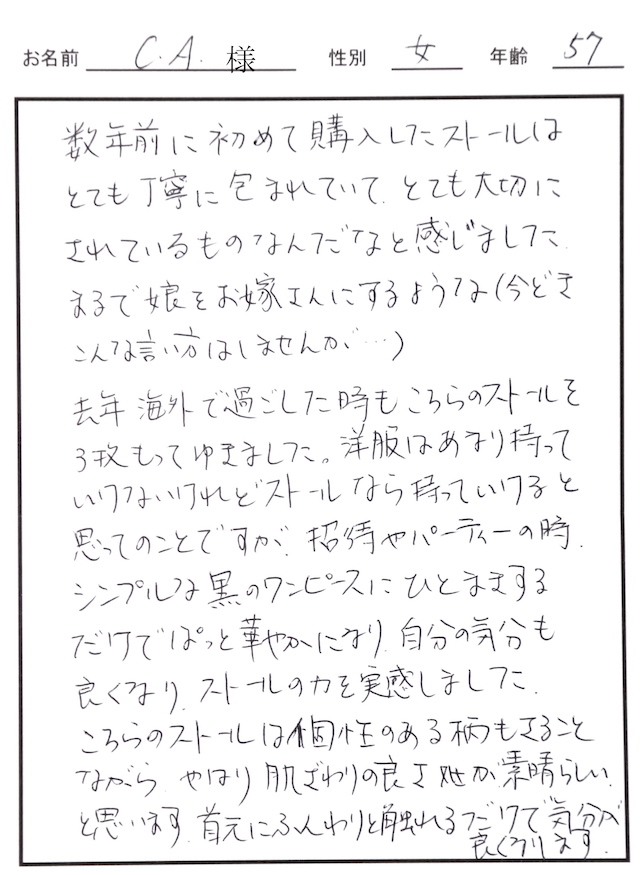 お名前 C.A. 様 性別 女 年齢 57
数年前に初めて購入したストールは
とても丁寧に包まれていて、とても大切に
されているものなんだなと感じました。
まるで娘をお嫁さんにするような(今どき
こんな言い方はしませんが…)
去年海外で過ごした時もこちらのストールを
3枚もってゆきました。洋服はあまり持って
いけないけれどストールなら持っていけると
思ってのことですが、招待やパーティーの時、
シンプルな黒のワンピースにひとまきする
だけでぱっと華やかになり、自分の気分も
良くなり、ストールの力を実感しました。
こちらのストールは個性のある柄もさること
ながら、やはり肌ざわりの良さが素晴らしい
と思います。首元にふんわりと触れるだけで気分が
良くなります。